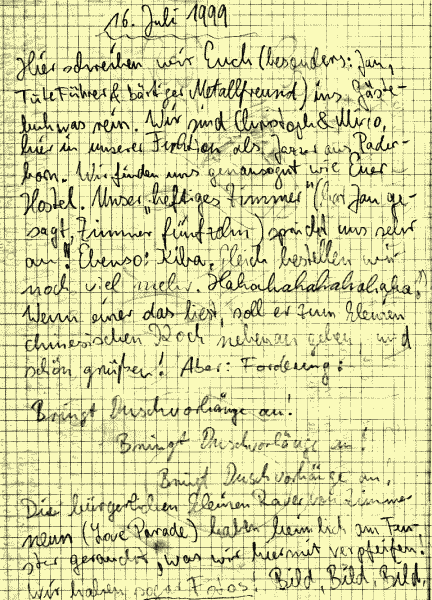 16. Juli 1999
Hier schreiben wir Euch (besonders: Jan,
Tute Führer & bärtiger Metallfreund) ins Gäste-
buch was rein. Wir sind Christoph & Mirco,
hier in unserer Funktion als Jazzer aus Pader-
born. Wir finden uns genausogut wie Euer
Hostel. Unser "heftiges Zimmer" (hat Jan ge-
sagt, Zimmer fünfzehn) spricht uns sehr
an! Ebenso: Kiba. Gleich bestellen wir
noch viel mehr. Hahahahahahahaha!)
Wenn einer das liest, soll er zum kleinen
chinesischen Koch nebenan gehen, und
schön grüßen! Aber: Forderung:
Bringt Duschvorhänge an!
Bringt Duschvorhänge an!
Bringt Duschvorhänge an!
Die bürgerlichen kleinen Raver von Zimmer
neun (Love Parade) haben heimlich am Fen-
ster geraucht, was wir hiermit verpfeifen!
Wir haben sogar Fotos! Bild, Bild, Bild,